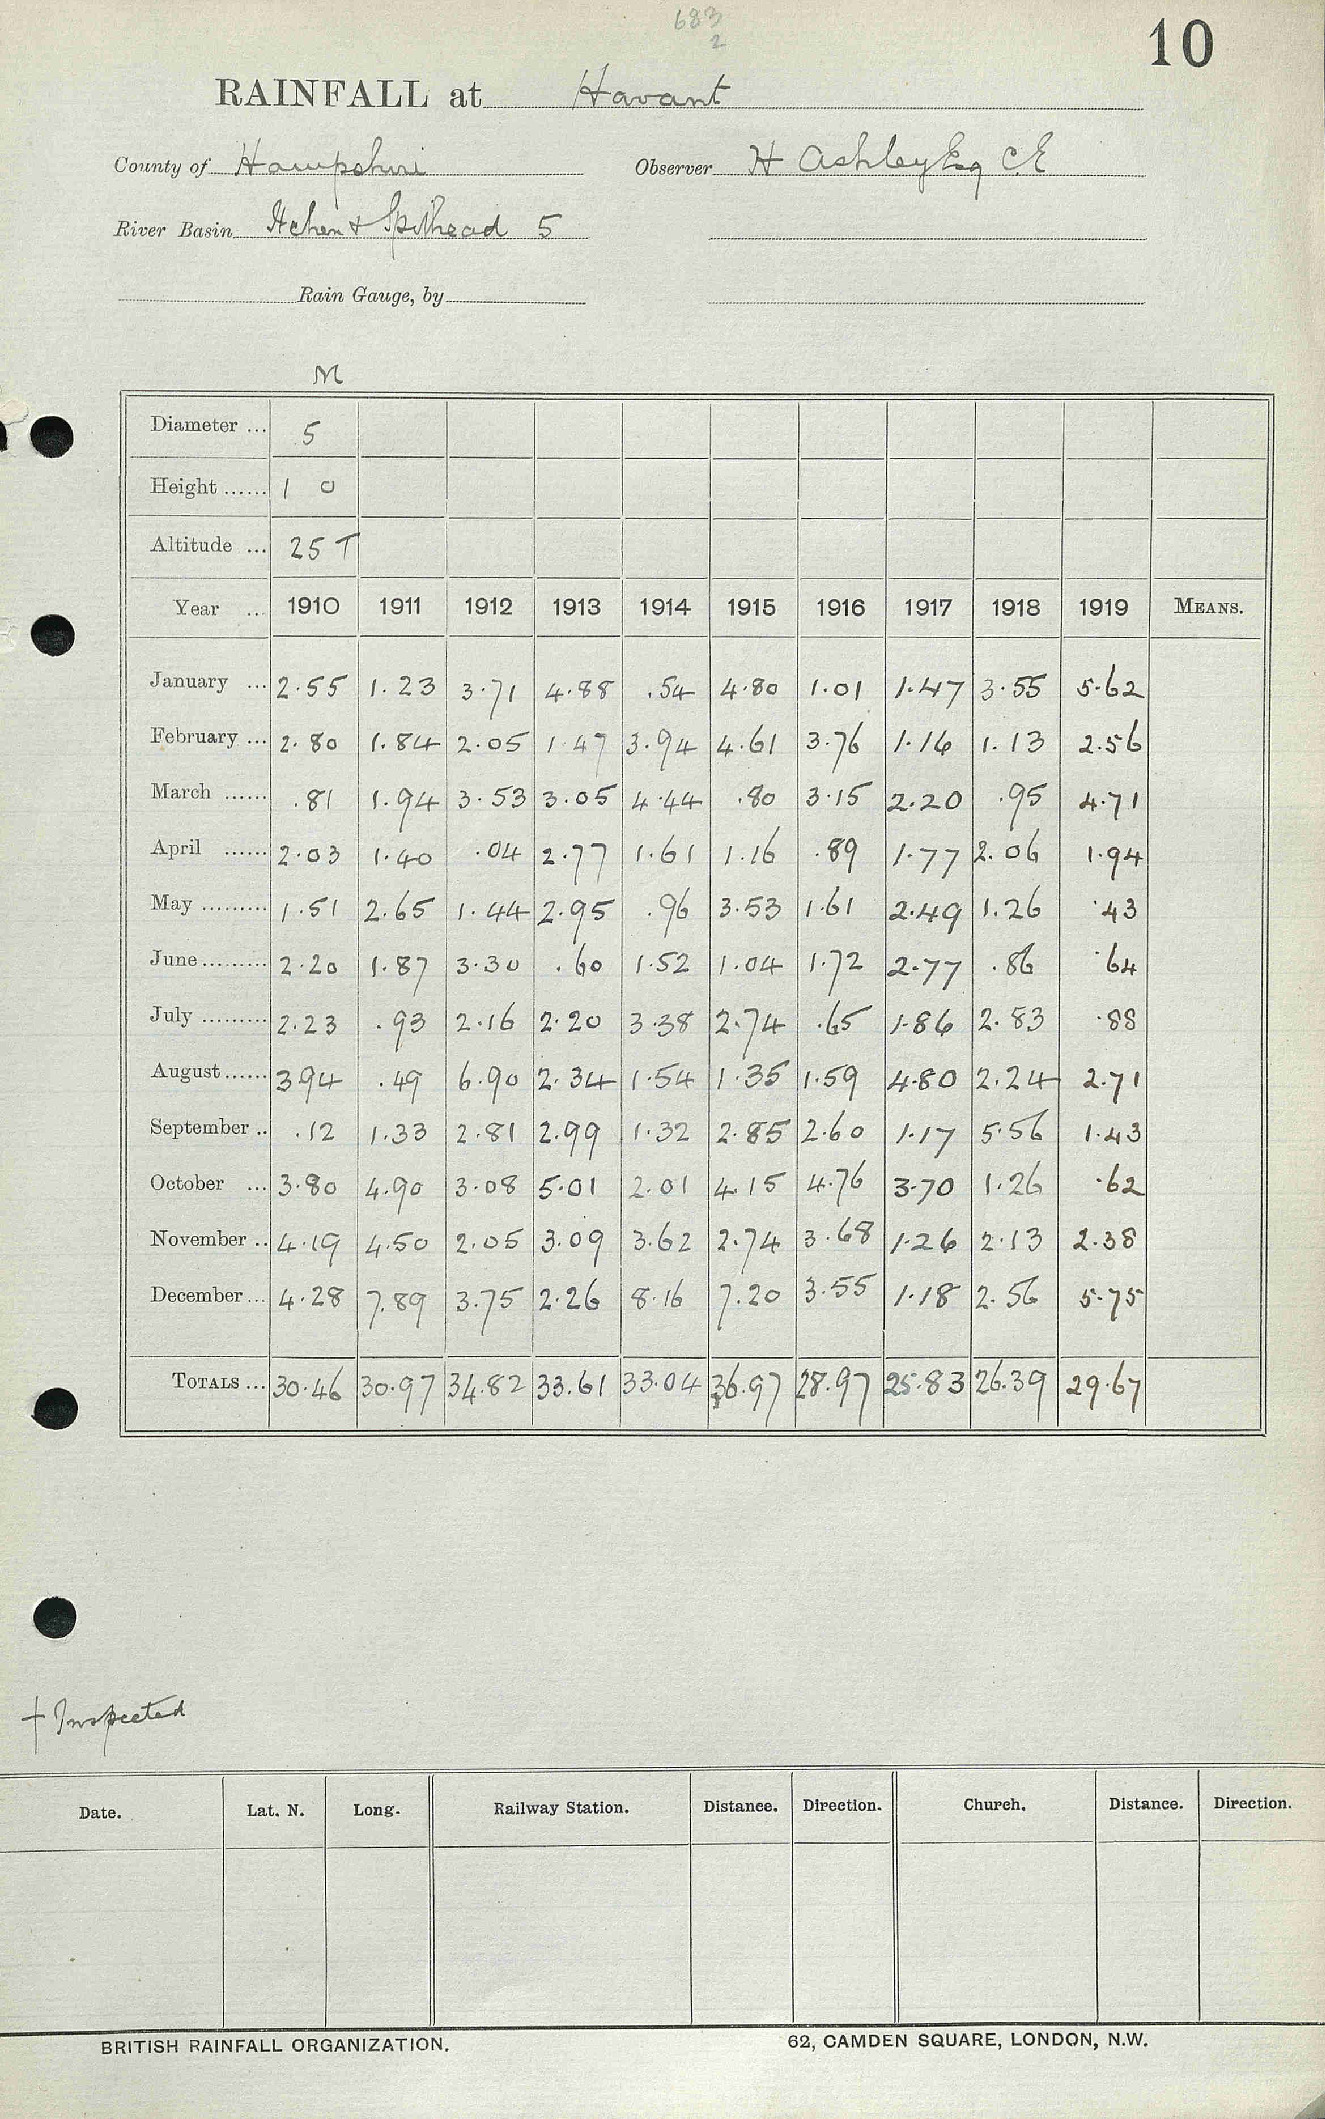 683
2
10
RAINFALL at Havant
County of Hampshire Observer H Ashley Esq C.E
River Basin Itchen & Spithead 5
Rain Gauge, by
M
Diameter ... 5
Height ...... 1 0
Altitude ... 25 T
Year ... 1910 1911 1912 1913 1914 1915 1916 1917 1918 1919 MEANS.
January ... 2.55 1.23 3.71 4.88 .54 4.80 1.01 1.47 3.55 5.62
February ... 2.80 1.84 2.05 1.47 3.94 4.61 3.76 1.16 1.13 2.56
March ...... .81 1.94 3.53 3.05 4.44 .80 3.15 2.20 .95 4.71
April ...... 2.03 1.40 .04 2.77 1.61 1.16 .89 1.77 2.06 1.94
May ......... 1.51 2.65 1.44 2.95 .96 3.53 1.61 2.49 1.26 .43
June ......... 2.20 1.87 3.30 .60 1.52 1.04 1.72 2.77 .86 .64
July ......... 2.23 .93 2.16 2.20 3.38 2.74 .65 1.86 2.83 .88
August ...... 3 94 .49 6.90 2.34 1.54 1.35 1.59 4.80 2.24 2.71
September .. .12 1.33 2.81 2.99 1.32 2.85 2.60 1.17 5.56 1.43
October ... 3.80 4.90 3.08 5.01 2.01 4.15 4.76 3.70 1.26 .62
November .. 4.19 4.50 2.05 3.09 3.62 2.74 3.68 1.26 2.13 2.38
December ... 4.28 7.89 3.75 2.26 8.16 7.20 3.55 1.18 2.56 5.75
TOTALS ... 30.46 30.97 34.82 33.61 33.04 36.97 28.97 25.83 26.39 29.67
+ Inspected
Date. Lat. N. Long. Railway Station. Distance. Direction. Church. Distance. Direction.
BRITISH RAINFALL ORGANIZATION. 62, CAMDEN SQUARE, LONDON, N.W.